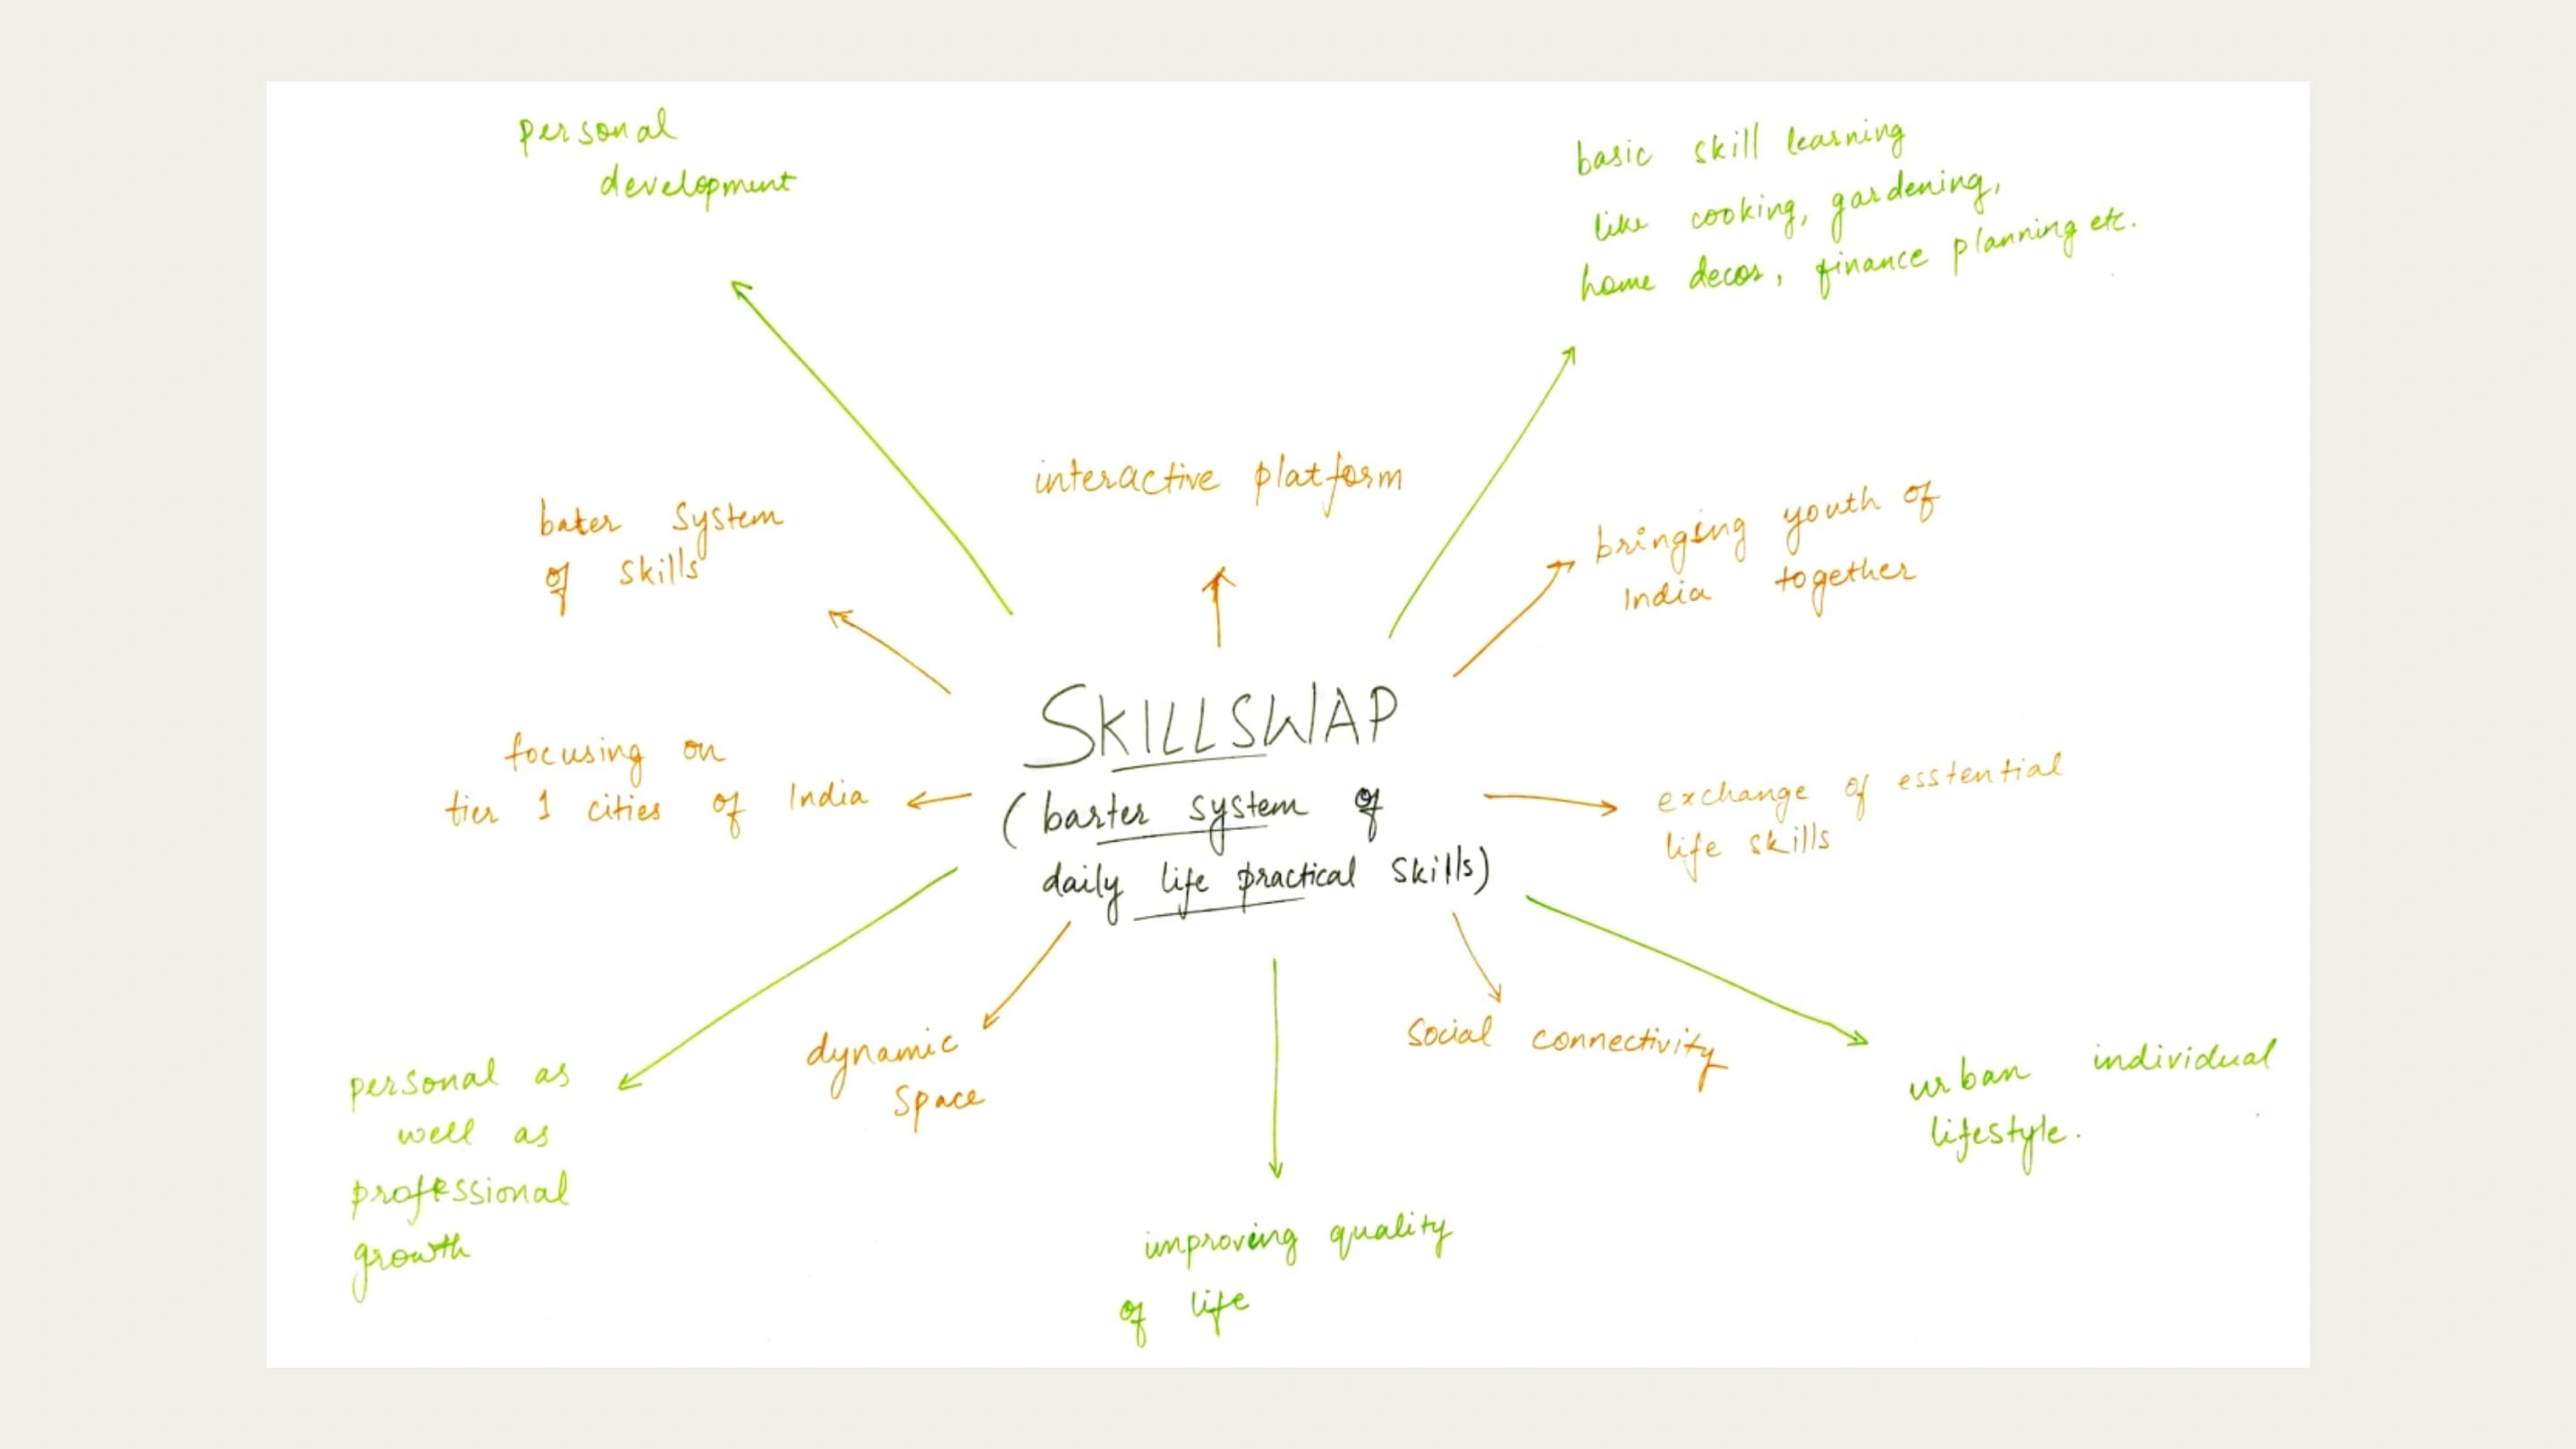 personal
development
basic skill learning
like cooking, gardening,
home decor, finance planning etc.
interactive platform
bater system
of skills
bringing youth of
India together
SKILLSWAP
(barter system of
daily life practical skills)
focusing on
tier 1 cities of India
exchange of esstential
life skills
personal as
well as
professional
growth
dynamic
space
social connectivity
urban individual
lifestyle.
improving quality
of life